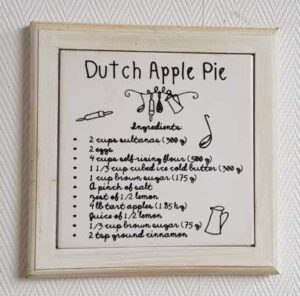 Dutch Apple Pie
Ingredients
• 2 cups sultanas (300 g)
• 2 eggs
• 4 cups self-rising flour (500 g)
• 1 1/3 cup cubed ice cold butter (300 g)
• 1 cup brown sugar (175 g)
• A pinch of salt
• Zest of 1/2 lemon
• 4 lb tart apples (1.85 kg)
• Juice of 1/2 lemon
• 1/3 cup brown sugar (75 g)
• 2 tsp ground cinnamon